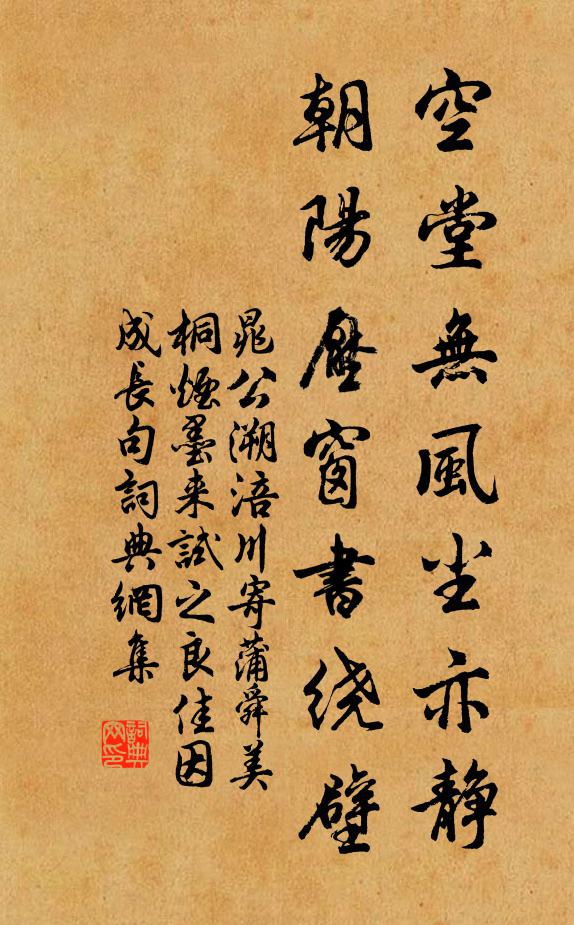 空堂無風尘亦静
朝陽壓窗書绕壁
晁公溯涪川寄蒲舜美
桐煙墨来試之良佳因
成長句詞典網集
詞典网印